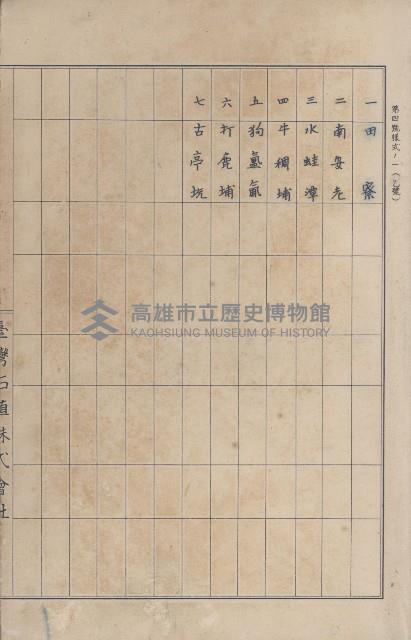 第四號樣式ノ一(乙號)
一 田寮
二 南安老
三 水蛙潭
四 牛稠埔
五 狗氳氤
六 打鹿埔
七 古亭坑
臺灣石道株式會社
高雄市立歷史博物館
KAOHSIUNG MUSEUM OF HISTORY